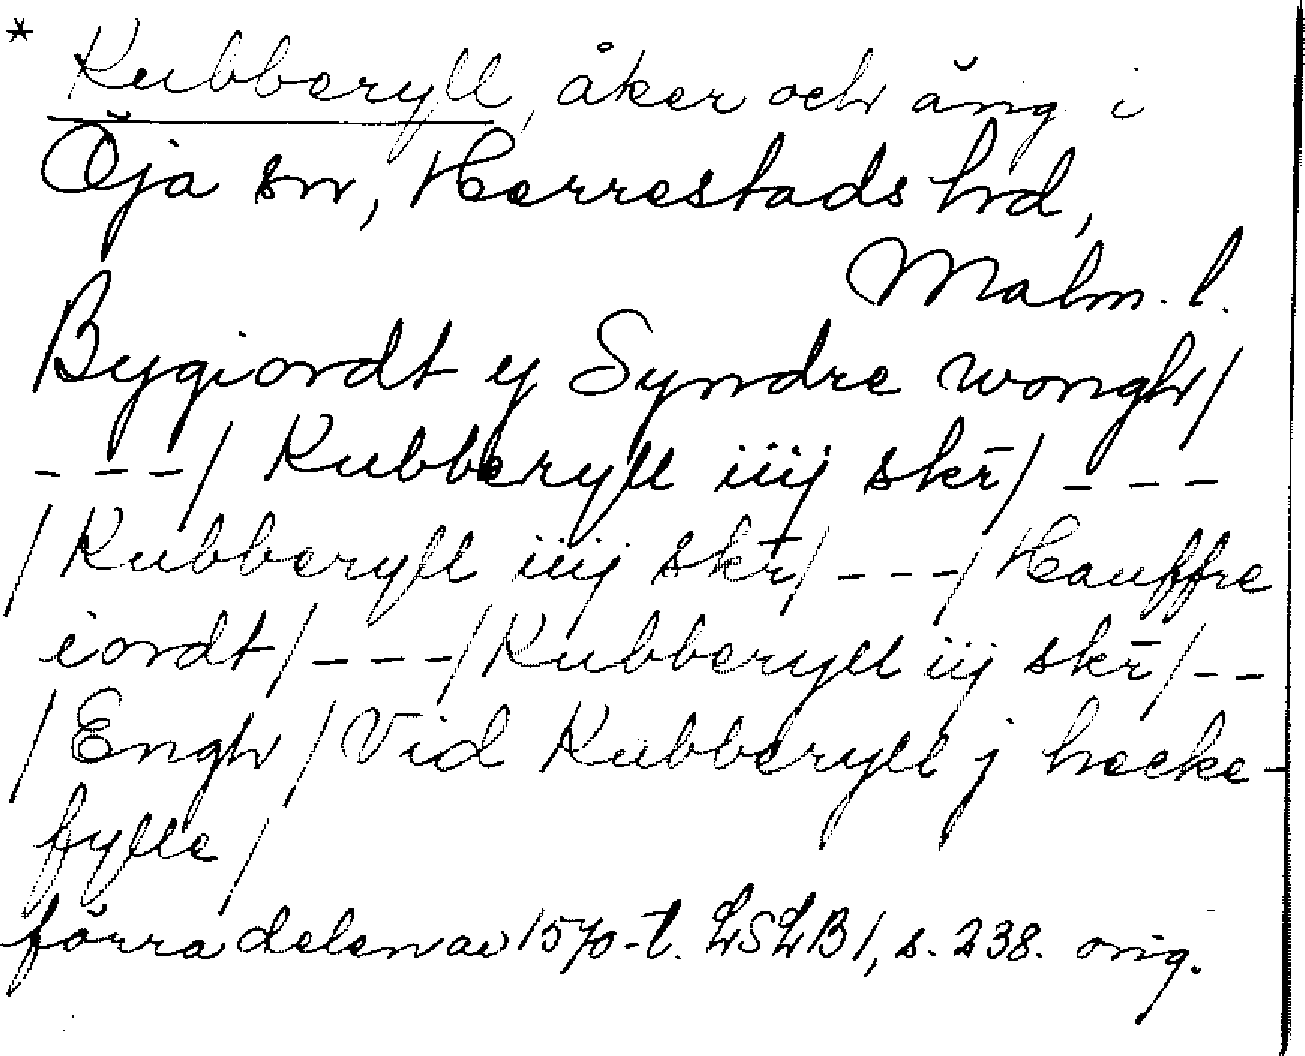 * Kubberyll, åker och äng i
Öja sn, Herrestads hd,
Malm. l.
Bygiordt y Syndre wongh/
---/ Kubberyll iiij skr̄/ ---
/Kubberyll iiij skr̄/ ---/ Hauffre
iordt/ ---/ Kubberyll iij skr̄/ --
/Engh/ Vid Kubberyll j hecke-
fylle/
förra delen av 1570-t. LSLB 1, s. 238. orig.